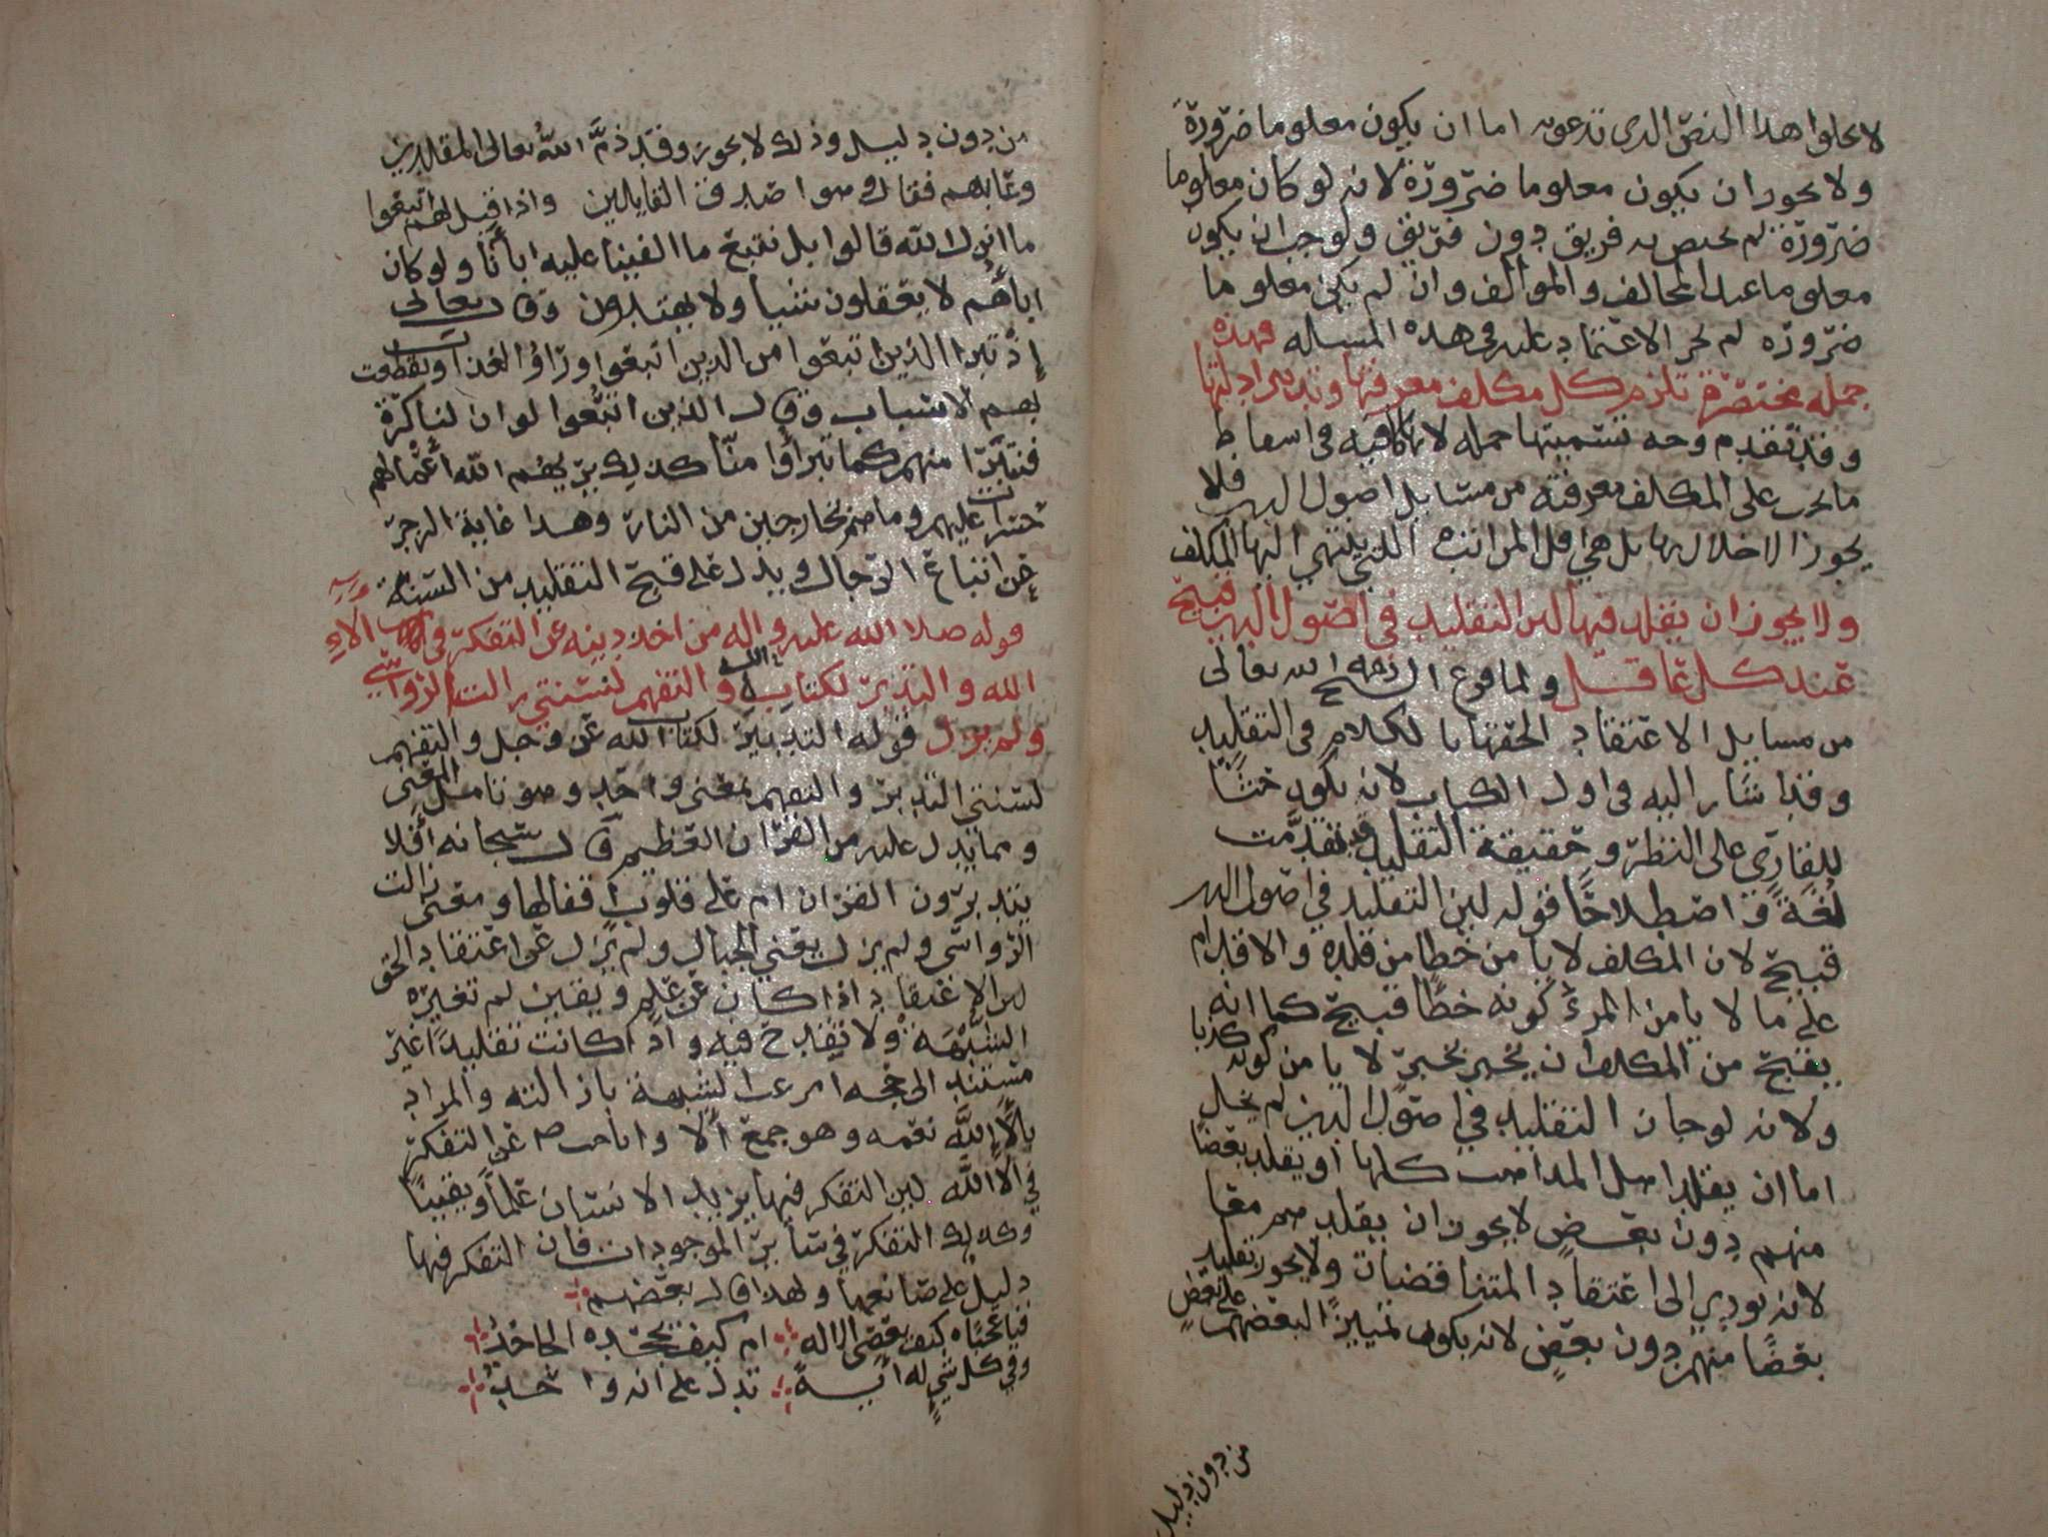 لا يخلوا هذا النص الذي تدعونه اما ان يكون معلوما ضرورة
ولا يجوز ان يكون معلوما ضرورة لانه لو كان معلوما
ضرورة لم يختص به فريق دون فريق ولوجب ان يكون
معلوما عند المخالف والموالف وان لم يكن معلوما
ضرورة لم يجز الاعتماد عليه في هذه المسئله فهذه
جمله مختصرة تلزم كل مكلف معرفتها وتدبر ادلتها
وقد تقدم وجه تسميتها جمله لانها كافيه في اسقاط
ما يجب على المكلف معرفته من مسايل اصول الدين فلا
يجوز الاخلال بها بل هي اقل المراتب اللتي ينتهي اليها المكلف
ولا يجوز ان يقلد فيها لان التقليد في اصول الدين قبيح
عند كل عاقل ولما فرغ الشيخ رحمه الله تعالى
من مسايل الاعتقاد الحقها بالكلام في التقليد
وقد اشار اليه في اول الكتاب لانه يكون حثا
للقاري على النظر وحقيقة التقليد قد تقدمت
لغة واصطلاحا قوله لان التقليد في اصول الدين
قبيح لان المكلف لا يامن خطا من قلده والاقدام
على ما لا يامن المرء كونه خطا قبيح كما انه
يقبح من المكلف ان يخبر بخبر لا يامن كونه كذبا
ولانه لو جاز التقليد في اصول الدين لم يخل
اما ان يقلد اهل المذاهب كلها او يقلد بعضا
منهم دون بعض لا يجوز ان يقلدهم معا
لانه يودي الى اعتقاد المتناقضات ولا يجوز تقليد
بعضا منهم دون بعض لانه يكون تمييزا لبعضهم على بعض
من دون دليل
من دون دليل وذلك لا يجوز وقد ذم الله تعالى المقلدين
وعابهم فقال وهو اصدق القايلين واذا قيل لهم اتبعوا
ما انزل الله قالوا بل نتبع ما الفينا عليه ابأنا ولو كان
ابأهم لا يعقلون شيا ولا يهتدون وقال تعالى
إذ تبرا الذين اتبعوا من الذين اتبعوا وراؤا العذاب وتقطعت
بهم الاسباب وقال الذين اتبعوا لو ان لنا كرة
فنتبرا منهم كما تبرأوا منا كذلك يريهم الله أعمالهم
حسرات عليهم وما هم بخارجين من النار وهذا غاية الزجر
عن اتباع الرجال ويدل على قبح التقليد من السنة
قوله صلا الله عليه واله من اخذ دينه عن التفكر في الاء
الله والتدبر لكتاب الله والتفهم لسنتي زالت الرواسي
ولم يزل قوله التدبر لكتاب الله عز وجل والتفهم
لسنتي التدبر والتفهم بمعنى واحد وهو تامل المعنى
ومما يدل عليه من القران العظيم قال سبحانه أفلا
يتدبرون القران ام على قلوب اقفالها ومعنى زالت
الرواسي ولم يزل يعني الجبال ولم يزل عن اعتقاد الحق
لان الاعتقاد اذا كان عن علم ويقين لم تغيره
الشبهة ولا تقدح فيه واذا كانت تقليدا غير
مستند الى حجه امرعت الشبهة بازالته والمراد
بالاء الله نعمه وهو جمع ألا وانما حث عن التفكر
في الاالله لان التفكر فيها يزيد الانسان علما ويقينا
وكذلك التفكر في سأير الموجودات فان التفكر فيها
دليل على صانعها ولهذا قال بعضهم
فيا عجباه كيف يعصى الاله ام كيف يجحده الجاحد
وفي كل شيء له أية تدل على انه واحد